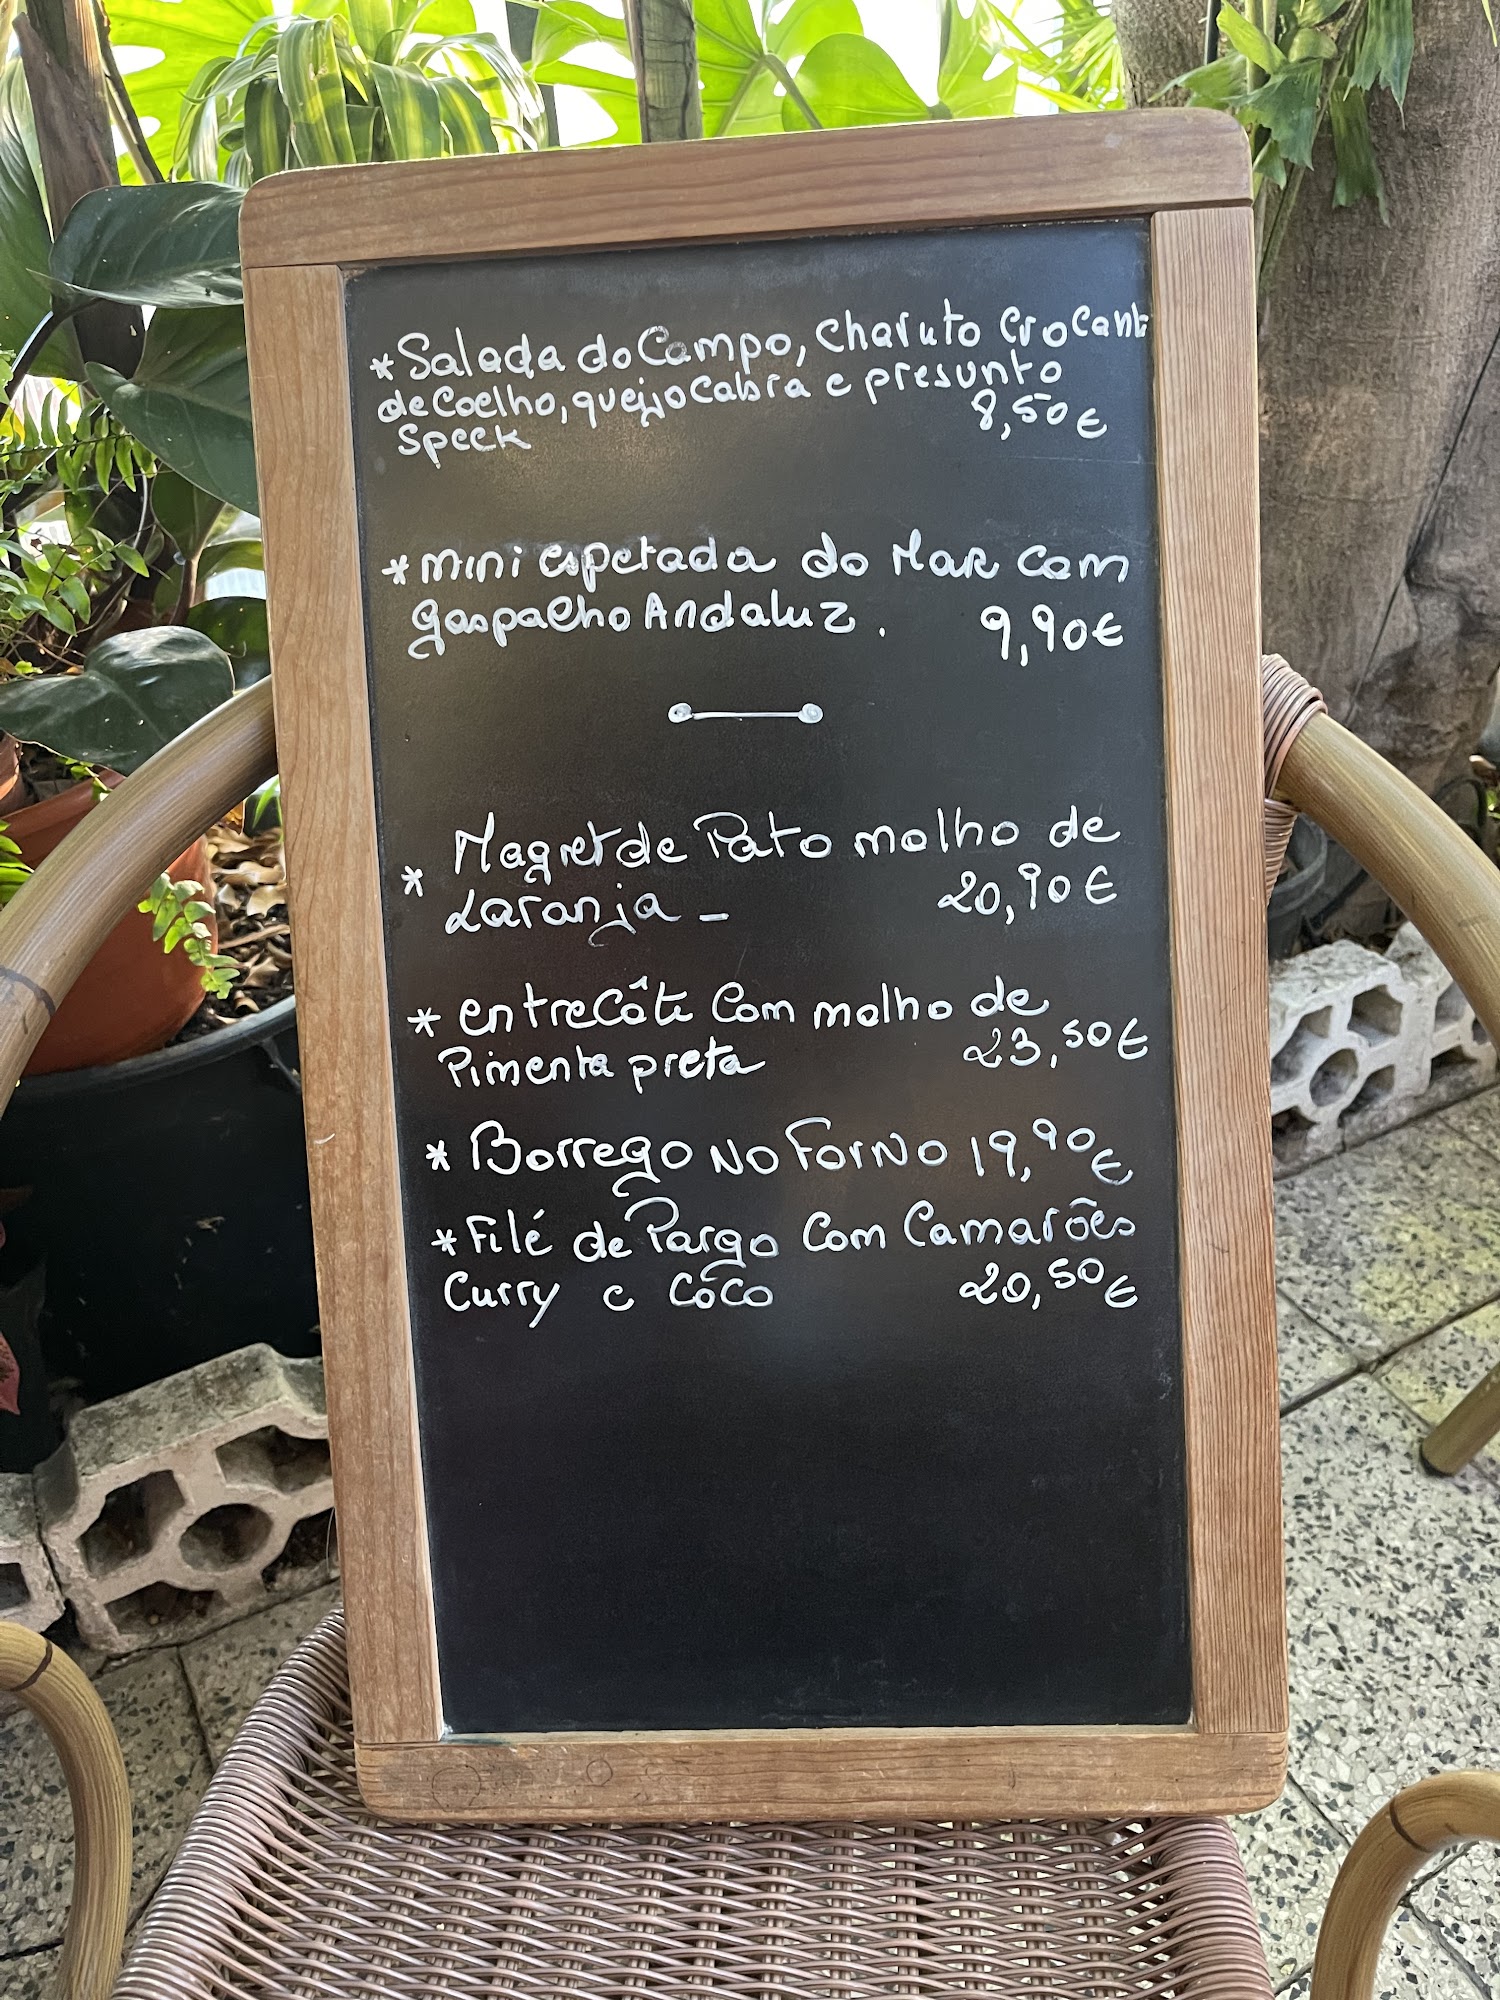 * Salada do Campo, Charuto Crocante
de Coelho, queijo Cabra e presunto
Speck 8,50€
* mini espetada do Mar Com
gaspacho Andaluz. 9,90€
* Magret de Pato molho de
Laranja - 20,90€
* entrecôte Com molho de
Pimenta preta 23,50€
* Borrego No Forno 19,90€
* Filé de Pargo Com Camarões
Curry e Côco 20,50€